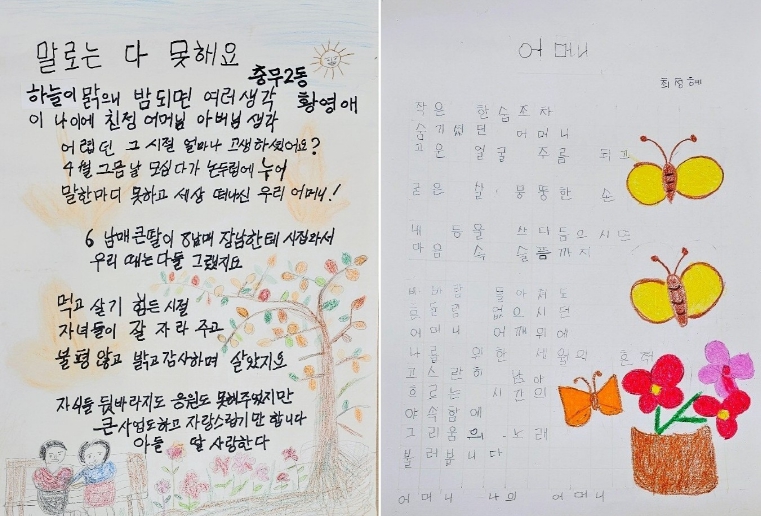 말로는 다 못해요
충무2동
황영애
하늘이 맑으니 밤되면 여러생각
이 나이에 친정 어머님 아버님 생각
어렵던 그 시절 얼마나 고생하셨어요?
4월 그믐날 모심다가 논두렁에 누어
말한마디 못하고 세상 떠나신 우리 어머니!
6남매 큰딸이 8남매 장남한테 시집와서
우리 때는 다들 그랬지요
먹고 살기 힘든 시절
자녀들이 잘 자라 주고
불평 않고 밝고 감사하며 살았지요
자식들 뒷바라지도 응원도 못해주었지만
큰사업도하고 자랑스럽기만 합니다
아들 딸 사랑한다
어머니
최점혜
작은 한숨조차
숨기셨던 어머니
고운 얼굴 주름 되고
굳은 살, 뭉뚱한 손
내 등을 쓰다듬으시던
마음 속 슬픔까지
비바람 몰아쳐도
흔들림 없으시던
어머니 어깨위에
나를 위한 생활의 흔적
고스란히 남아
흐르는 시간의
야속함에
그리움의 노래
불러봅니다
어머니 나의 어머니